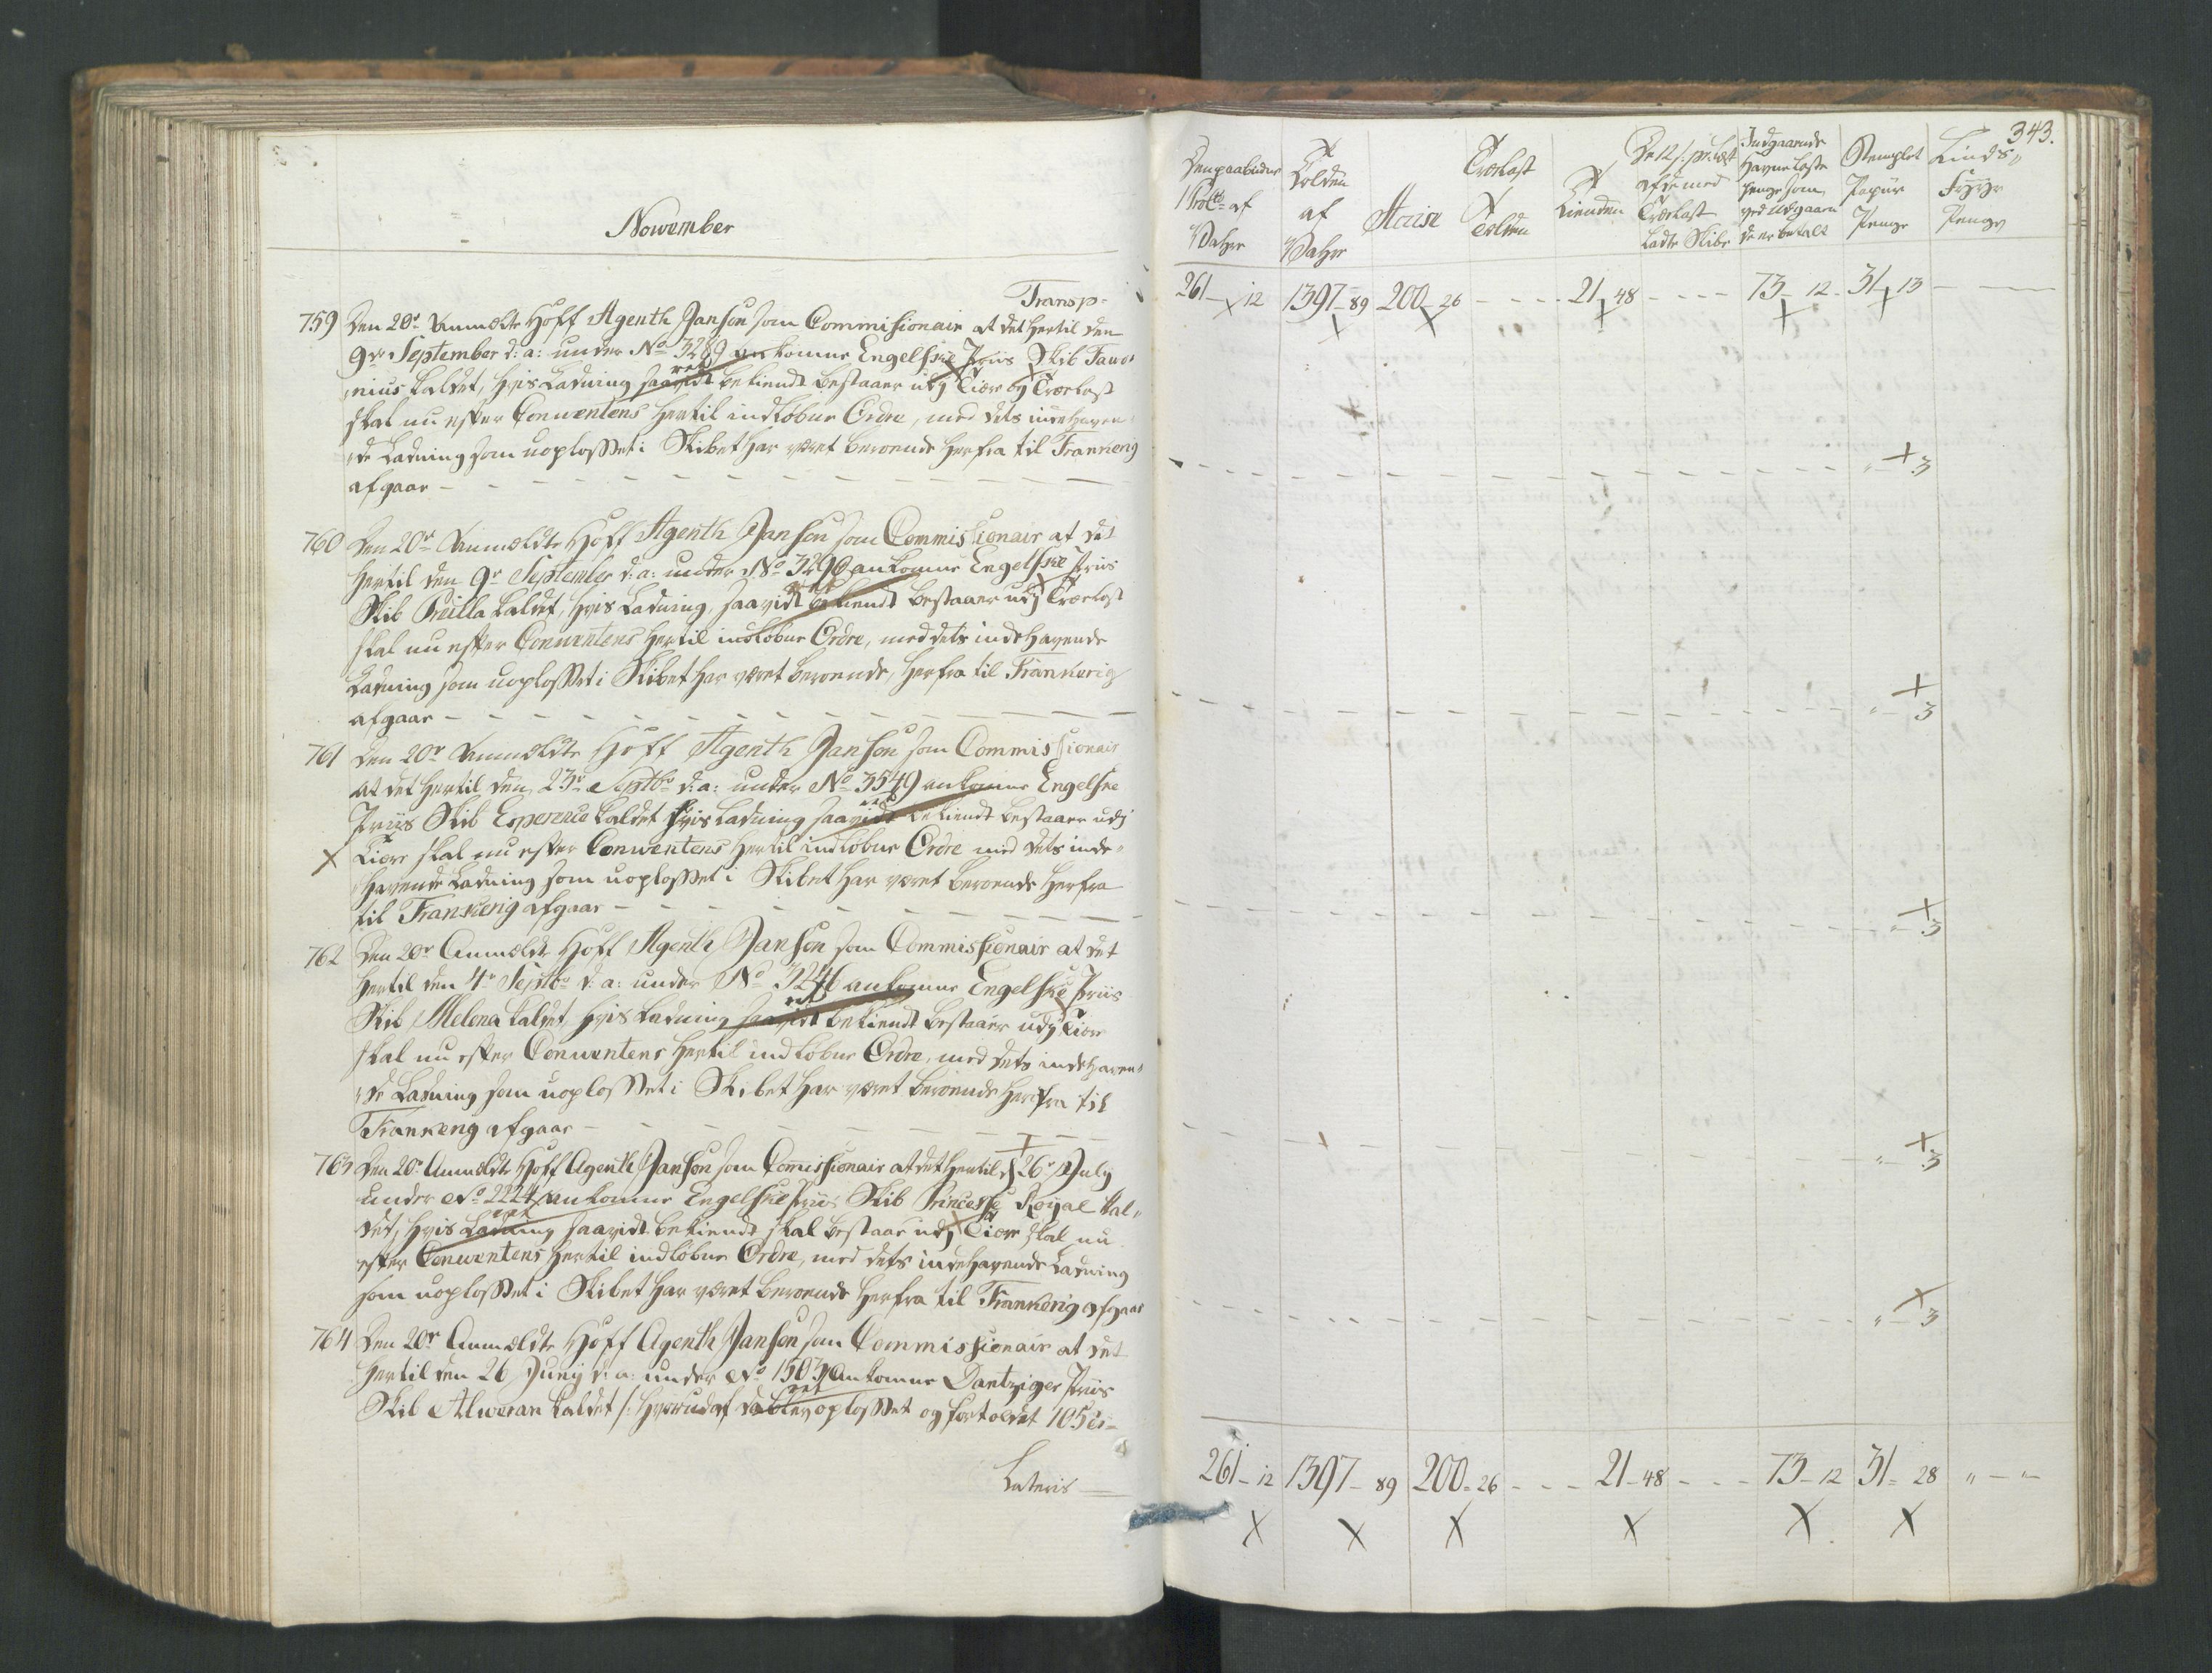 November
Transp-
759 Den 20de Anmældte Hoff Agenth Janson som Commisionair at det hertil den
9de September d: a: under No 3289 ankomne Engelske Priis Skib Favo
nius kaldet, hvis Ladning saavidt bekiendt bestaaer udj Tiære og Trælast
skal nu efter Conventens hertil indløbne Ordre, med dets indehaven
de Ladning som uoplosset i Skibet har været beroende herfra til Frankerig
afgaar
760 Den 20de Anmældte Hoff Agenth Janson som Commissionair at det
hertil den 9de September d: a: under No 3290 ankomne Engelske Priis
Skib kaldet, hvis Ladning, saavidt bekiendt bestaaer udj Trælast
skal nu efter Conventens hertil indløbne Ordre, med dets indehavende
Ladning som uoplosset i Skibet har været beroende, herfra til Frankerig
afgaar
761 Den 20de Anmældte Hoff Agenth Janson som Commissionair
at det hertil den 23de Septbr d: a: under No 3549 ankomne Engelske
Priis Skib Esperence kaldet hvis Ladning saavidt bekiendt bestaaer udj
Tiære skal nu efter Conventens hertil indløbne Ordre med dets inde-
havende Ladning som uoplosset i Skibet har været beroende herfra
til Frankerig afgaar
762 Den 20de Anmældte Hoff Agenth Janson som Commissionair at det
hertil den 4de Septbr d: a: under No ankomne Engelske Priis
Skib Melona kaldet, hvis Ladning saavidt bekiendt bestaaer udj Tiære
skal nu efter Conventens hertil indløbne Ordre, med dets indehaven-
de Ladning som uoplosset i Skibet har været beroende herfra til
Frankerig afgaar
763 Den 20de Anmældte Hoff Agenth Janson som Comissionair at det hertil d 26de July
under No 2224 ankomne Engelske Priis Skib Princesse Royal kal-
det, hvis Ladning saavidt bekiendt skal bestaae udj Tiære skal nu
efter Conventens hertil indløbne Ordre, med dets indehavende Ladning
som uoplosset i Skibet har været beroende herfra til Frankerig afgaar
764 Den 20de Anmældte Hoff Agenth Janson som Commissionair at det
hertil den 26 Junij d: a: under No 1503 ankomne Dantziger Priis
Skib Alweran kaldet /: hvorudaf da blev oplosset og fortoldet 105
Lateris
343.
Den paabudne
Procto af
Vahre
Tolden
af
Vahre
Accise
Trælast
Tolden
Tienden
De 12 s. pr. Læst
af de med
Trælast
ladte Skibe
Indgaaende
Havne Læste
penge som
ved Udgaaen
de er betalt
Stemplet
Papiir
Penge
Linds
Fyhr
Penge
261-12 1397-89 200-26 - - - - 21-48 - - - - 73-12 31-13 - -
" - 3
" - 3
" - 3
" - 3
" - 3
261-12 1397-89 200-26 - - - 21-48 - - - 73-12 31-28 " - "